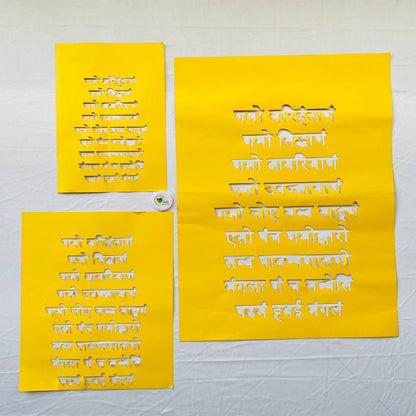 णमो अरिहंताणं
णमो सिद्धाणं
णमो आयरियाणं
णमो उवज्झायाणं
णमो लोए सव्व साहूणं
एसो पंच णमोक्कारो
सव्व पावप्पणासणो
मंगला णं च सव्वेसिं
पढमं हवई मंगलं
णमो अरिहंताणं
णमो सिद्धाणं
णमो आयरियाणं
णमो उवज्झायाणं
णमो लोए सव्व साहूणं
एसो पंच णमोक्कारो
सव्व पावप्पणासणो
मंगला णं च सव्वेसिं
पढमं हवई मंगलं
णमो अरिहंताणं
णमो सिद्धाणं
णमो आयरियाणं
णमो उवज्झायाणं
णमो लोए सव्व साहूणं
एसो पंच णमोक्कारो
सव्व पावप्पणासणो
मंगला णं च सव्वेसिं
पढमं हवई मंगलं